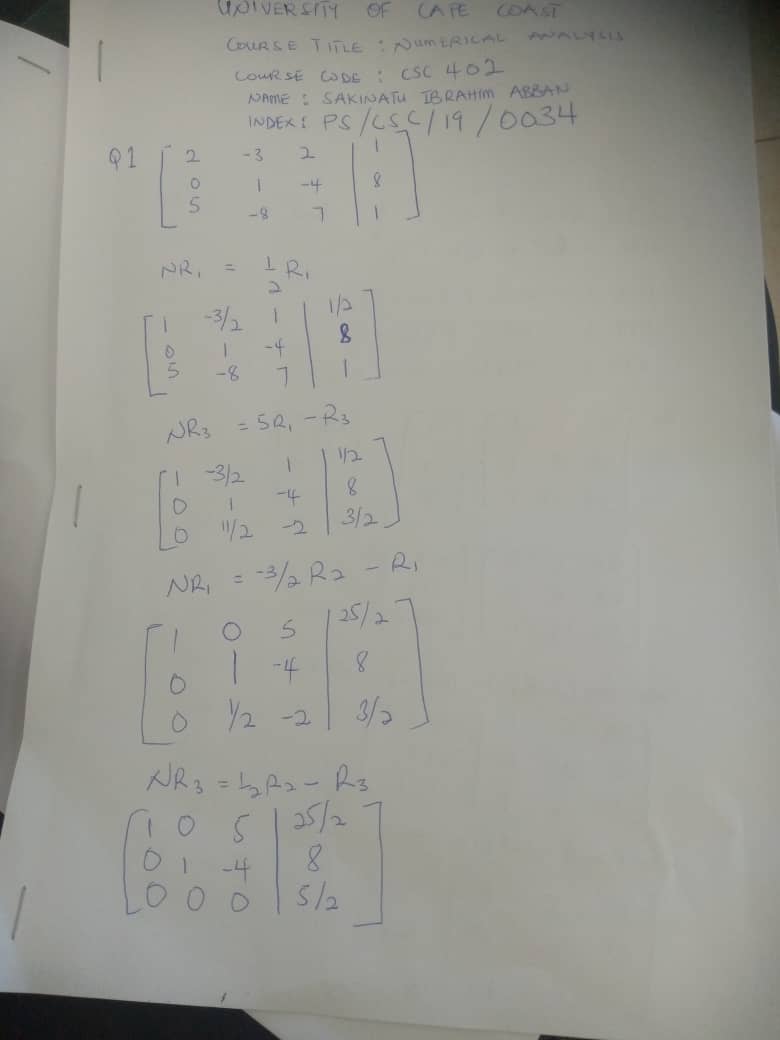 UNIVERSITY OF CAPE COAST
COURSE TITLE : NUMERICAL ANALYSIS
COURSE CODE : CSC 402
NAME : SAKINATU IBRAHIM ABBAN
INDEX : PS/CSC/19/0034
Q1 [ 2 -3 2 | 1
0 1 -4 | 8
5 -8 7 | 1 ]
NR₁ = 1/2 R₁
[ 1 -3/2 1 | 1/2
0 1 -4 | 8
5 -8 7 | 1 ]
NR₃ = 5R₁ - R₃
[ 1 -3/2 1 | 1/2
0 1 -4 | 8
0 11/2 -2 | 3/2 ]
NR₁ = -3/2 R₂ - R₁
[ 1 0 5 | 25/2
0 1 -4 | 8
0 1/2 -2 | 3/2 ]
NR₃ = 1/2 R₂ - R₃
[ 1 0 5 | 25/2
0 1 -4 | 8
0 0 0 | 5/2 ]